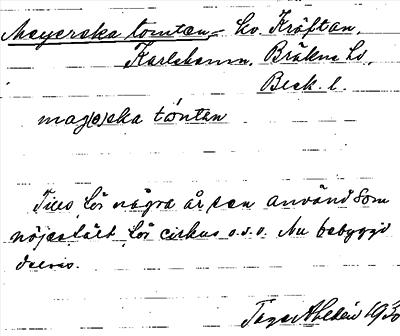 Meyerska tomten, kv. Kräftan,
Karlshamn, Bräkne hd,
Blek. l.
maj(e)ska tónten
Tills för några år sen använd som
nöjesfält för cirkus o.s.v. Nu bebyggd
delvis.
1930